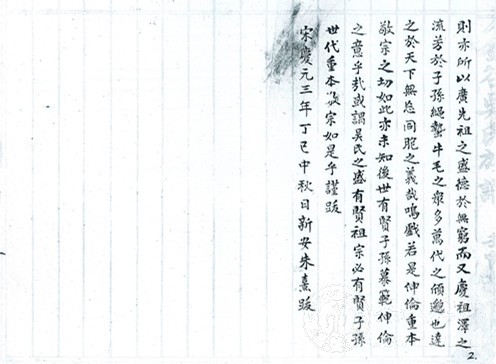 則亦所以廣先祖之盛德於無窮而又慶祖澤之
流芳於子孫繩蟄牛毛之衆多萬代之傾
也達
之於天下無忘同胞之義哉嗚戲若是仲倫重本
敬宗之切如此亦未知後世有賢子孫慕範仲倫
之意乎哉或謂吴氏之盛有賢祖宗必有賢子孫
世代重本敬宗如是乎謹跋
宋慶元三年丁巳中秋日新安朱熹跋
2.